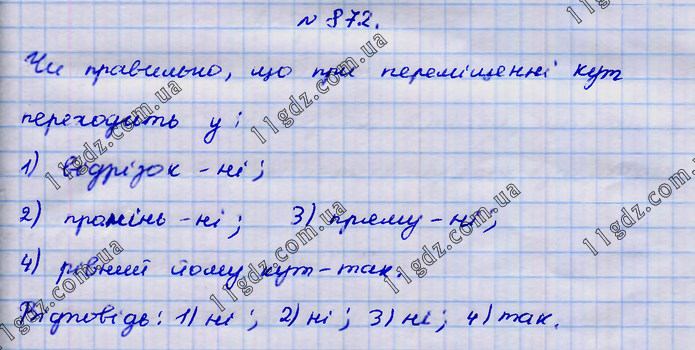 № 872.
Чи правильно, що при переміщенні кут
переходить у:
1) відрізок - ні;
2) промінь - ні; 3) пряму - ні;
4) рівний йому кут - так.
Відповідь: 1) ні; 2) ні; 3) ні; 4) так.
11gdz.com.ua
11gdz.com.ua
11gdz.com.ua
11gdz.com.ua
11gdz.com.ua
11gdz.com.ua
11gdz.com.ua
11gdz.com.ua